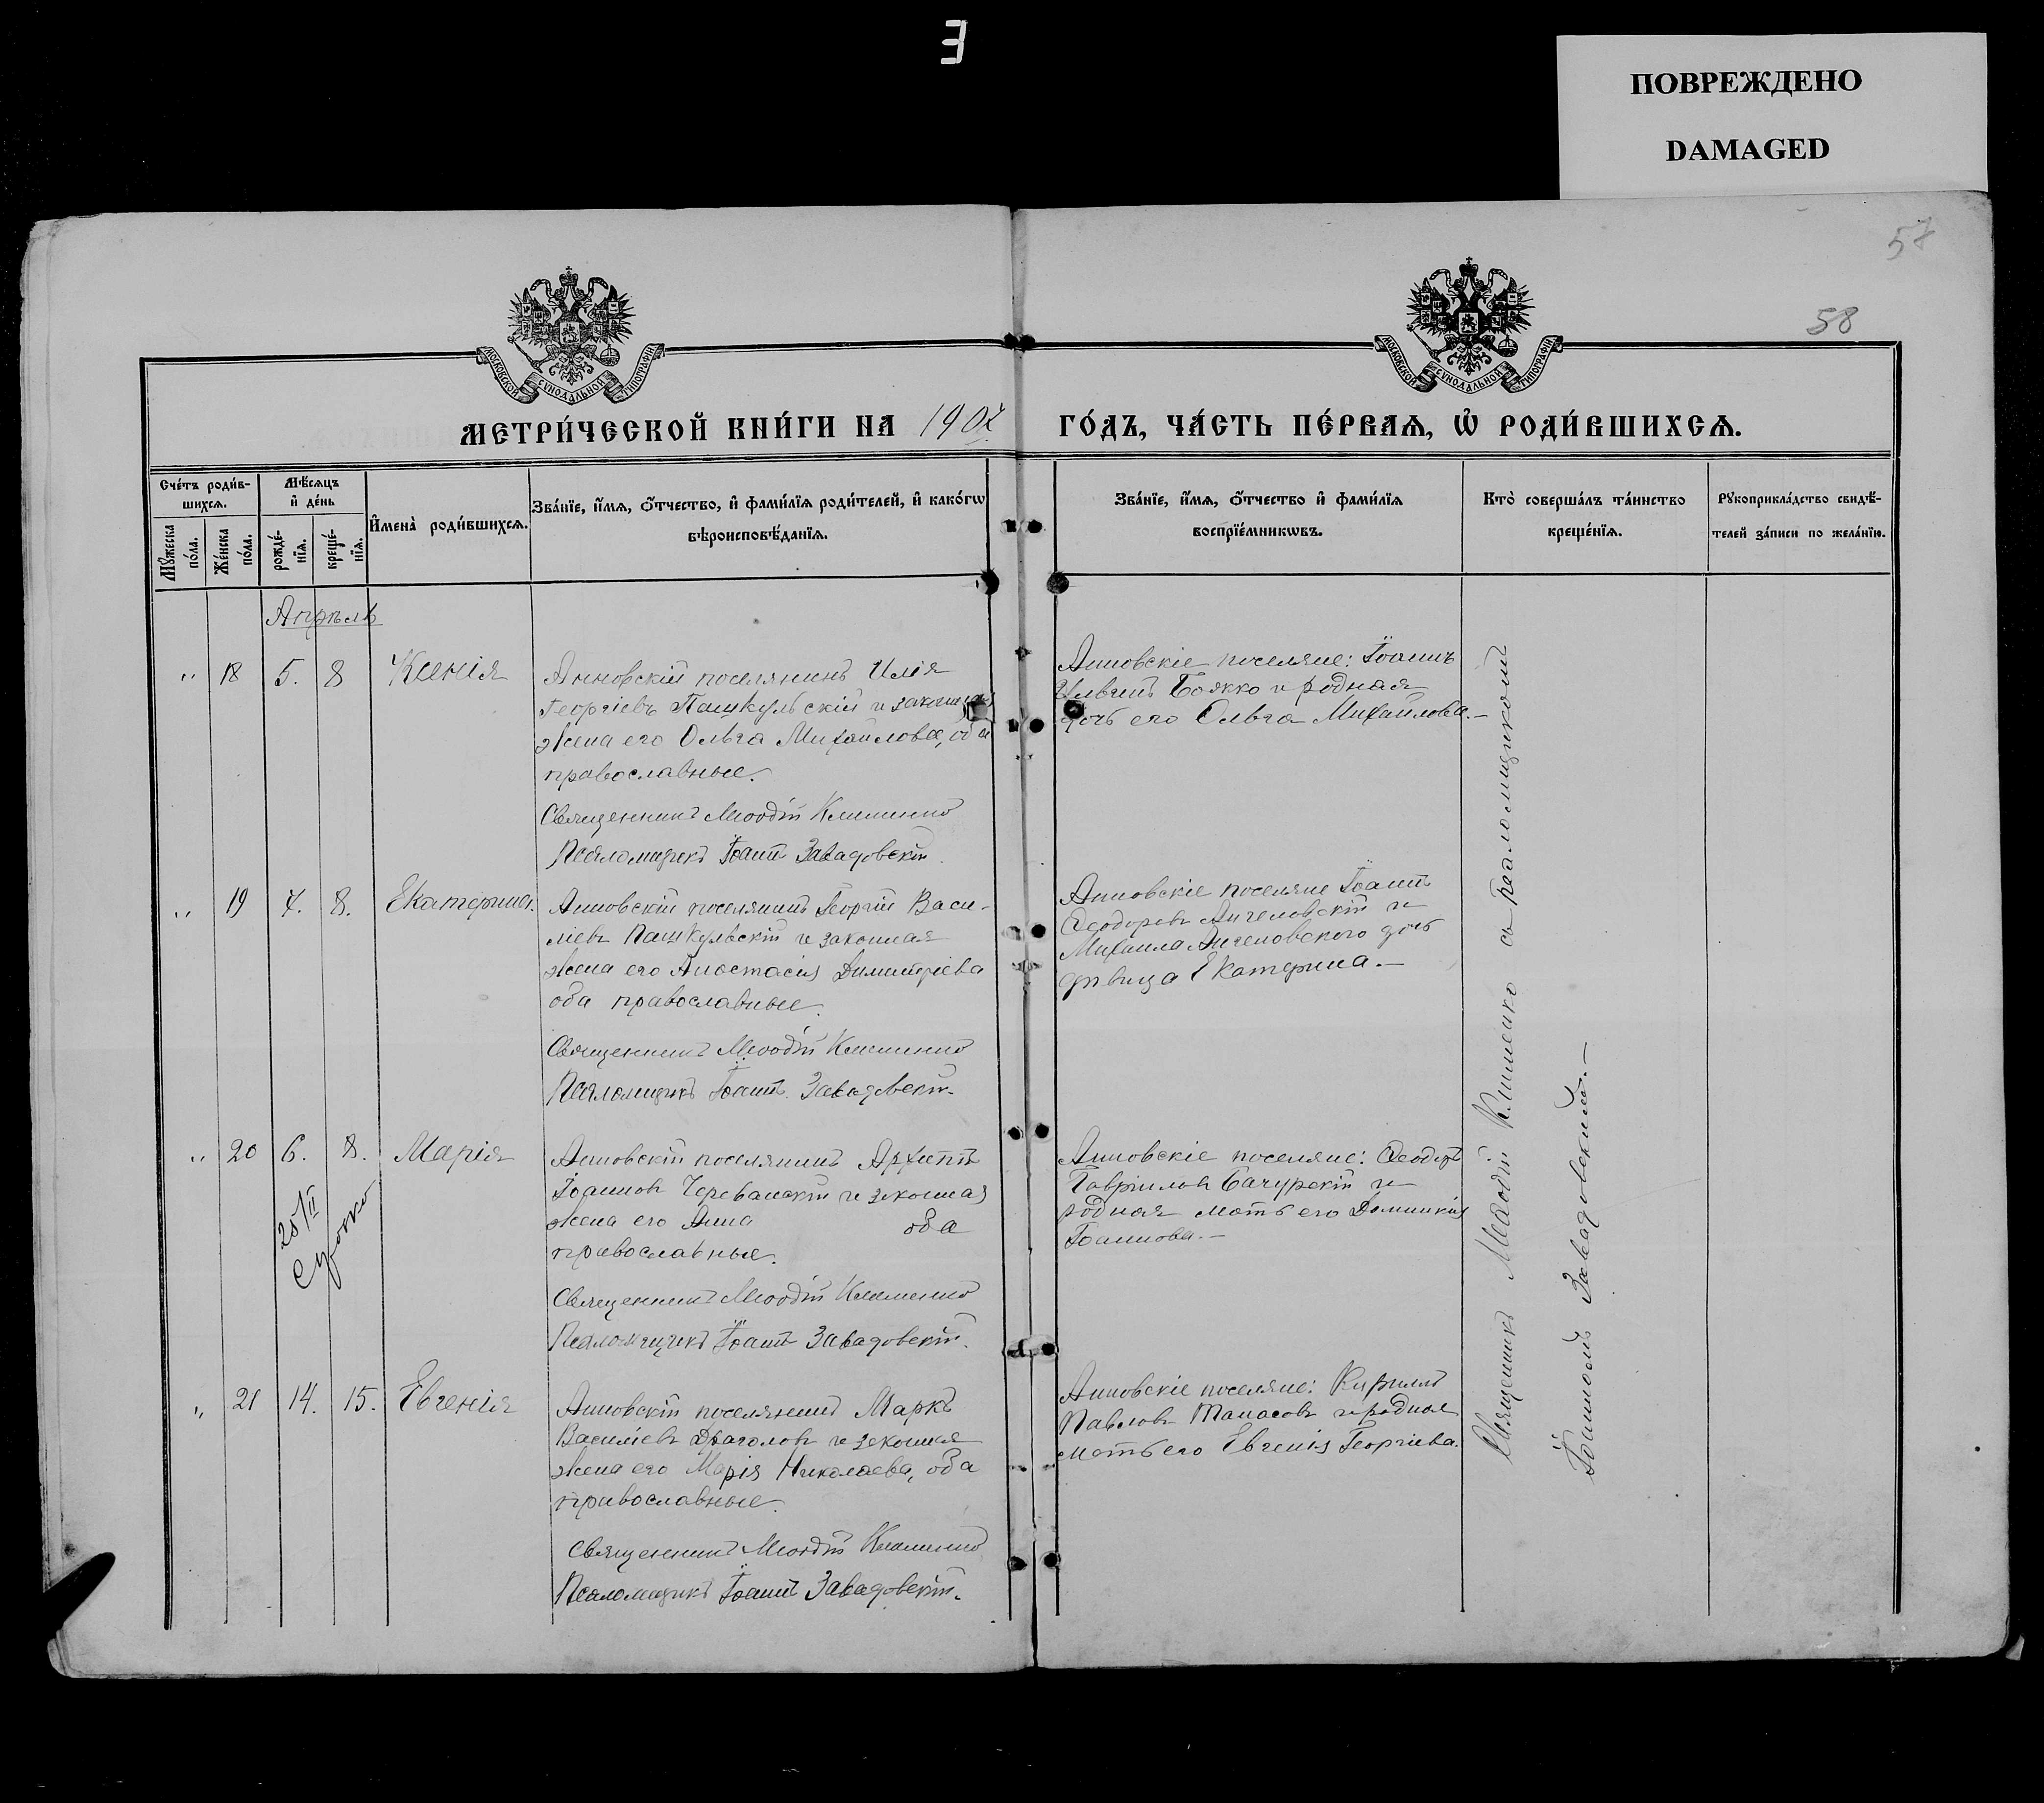 ПОВРЕЖДЕНО
DAMAGED
57
58
МОСКОВСКОЙ СѴНОДАЛЬНОЙ ТИПОГРАФІИ
МОСКОВСКОЙ СѴНОДАЛЬНОЙ ТИПОГРАФІИ
МЕТРИ́ЧЕСКОЙ КНИ́ГИ НА 1907 ГО́ДЪ, ЧА́СТЬ ПЕ́РВАѦ, Ѡ҆ РОДИ́ВШИХСѦ.
Сче́тъ роди́в-
шихсѧ.
Мꙋжеска по́ла.
Же́нска по́ла.
Мѣ́сѧцъ и҆ де́нь
рожде́-
нїѧ.
креще́-
нїѧ.
И҆мена̀ роди́вшихсѧ.
Зва́нїе, и҆́мѧ, ѻ҆́тчество, и҆ фами́лїѧ роди́телей, и҆ како́гѡ
вѣроисповѣ́данїѧ.
Зва́нїе, и҆́мѧ, ѻ҆́тчество и҆ фами́лїѧ
воспрїе́мникѡвъ.
Кто̀ соверша́лъ та́инство
креще́нїѧ.
Рꙋкоприкла́дство свидѣ́-
телей за́писи по жела́нїю.
Апрѣль
" 18 5. 8 Ксенія
Анновскій поселянинъ Илія
Георгіевъ Пашкульскій и законная
жена его Ольга Михайлова, оба
православные.
Священникъ Меѳодій Клименко
Псаломщикъ Іоаннъ Завадовскій.
Анновскіе поселяне: Іоаннъ
Боякко и родная
дочь его Ольга Михайлова.—
" 19 7. 8. Екатерина.
Анновскій поселянинъ Георгій Васи-
ліевъ Пашкульскій и законная
жена его Анастасія Димитріева
оба православные.
Священникъ Меѳодій Клименко
Псаломщикъ Іоаннъ Завадовскій.
Анновскіе поселяне Іоаннъ
Ѳеодоровъ Ангеловскій и
Михаила Ангеловского дочь
дѣвица Екатерина.—
" 20 6. 8. Марія
Анновскій поселянинъ Архипъ
Іоанновъ Череванскій и законная
жена его Анна оба
православные.
Священникъ Меѳодій Клименко
Псаломщикъ Іоаннъ Завадовскій.
Анновскіе поселяне: Ѳеодоръ
Гавріиловъ Бачурскій и
родная мать его Домникія
Іоаннова.—
" 21 14. 15. Евгенія
Анновскій поселянинъ Маркъ
Василіевъ Драголовъ и законная
жена его Марія Николаева, оба
православные.
Священникъ Меѳодій Клименко
Псаломщикъ Іоаннъ Завадовскій.
Анновскіе поселяне: Кириллъ
Павловъ Танасовъ и родная
мать его Евгенія Георгіева.
Священникъ Меѳодій Клименко съ псаломщикомъ
Іоанномъ Завадовскимъ.—